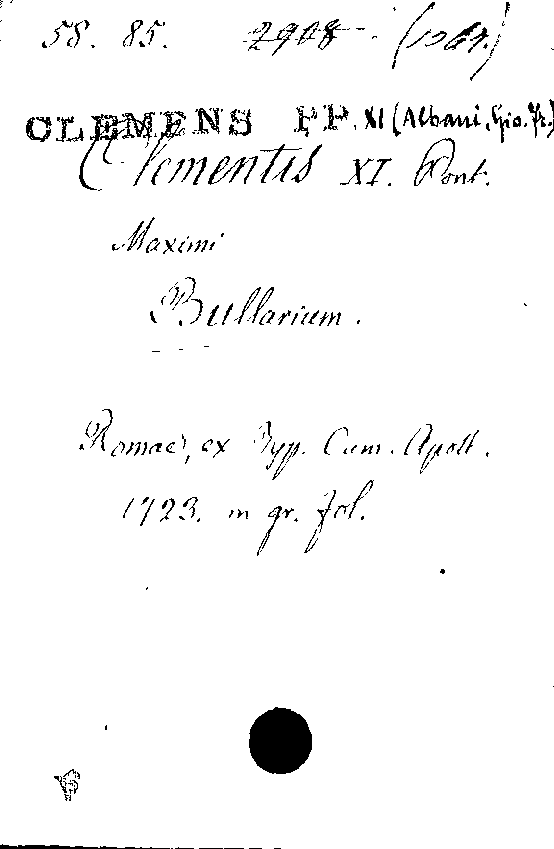 58. 85. 2908
CLEMENS PP. XI (Albani, Gio. Fr.)
Clementis XI. Pont.
Maximi
Bullarium.
Romae, ex Typ. Cam. Apost.
1723. in gr. fol.